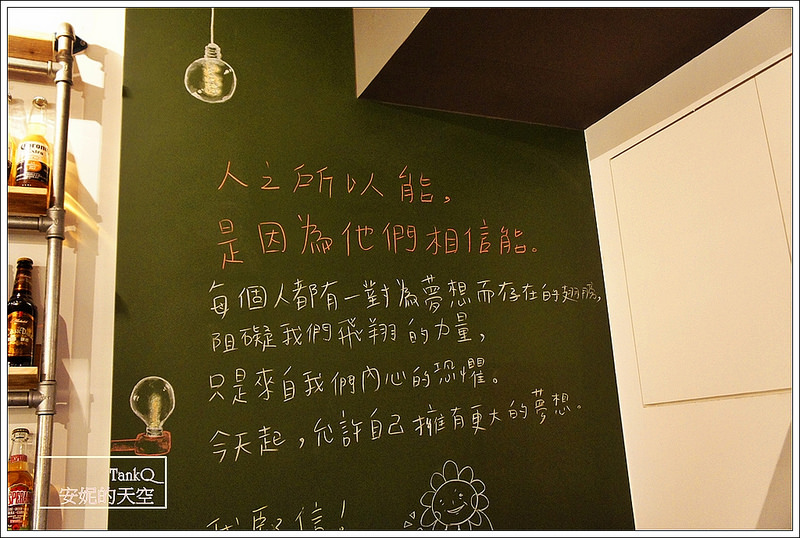 人之所以能，
是因為他們相信能。
每個人都有一對為夢想而存在的翅膀，
阻礙我們飛翔的力量，
只是來自我們內心的恐懼。
今天起，允許自己擁有更大的夢想。
信！
Corona
Extra
DESPERADOS
TankQ
安妮的天空